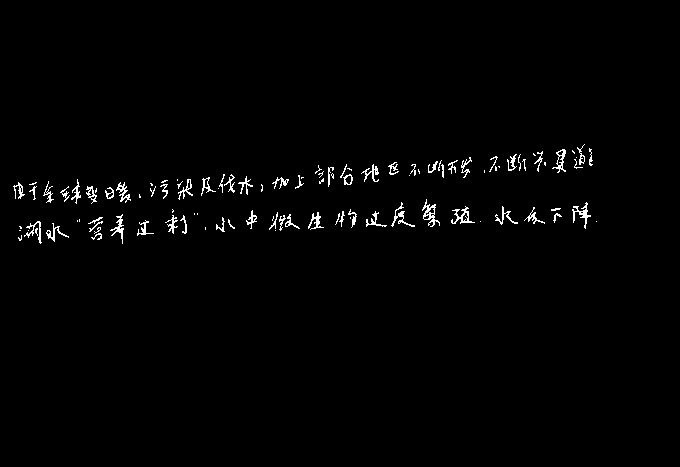 由于全球变暖、污染及伐木,加上部分地区不断开发,不断
湖水"营养过剩",水中微生物过度繁殖.水质下降.